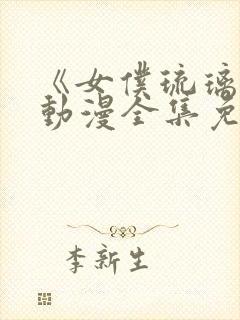 《女僕琉璃
動漫全集免
李新生